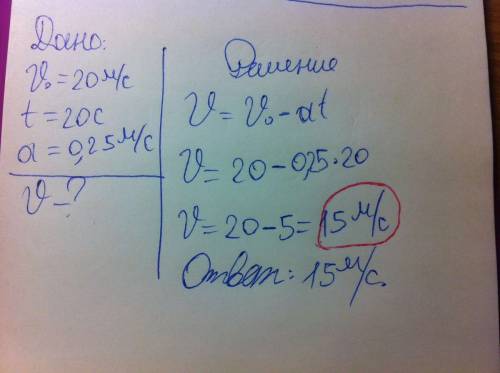 Дано:
V₀ = 20 м/с
t = 20с
a = 0,25 м/с
V - ?
Решение
V = V₀ - at
V = 20 - 0,25 · 20
V = 20 - 5 = 15 м/с
Ответ: 15 м/с.